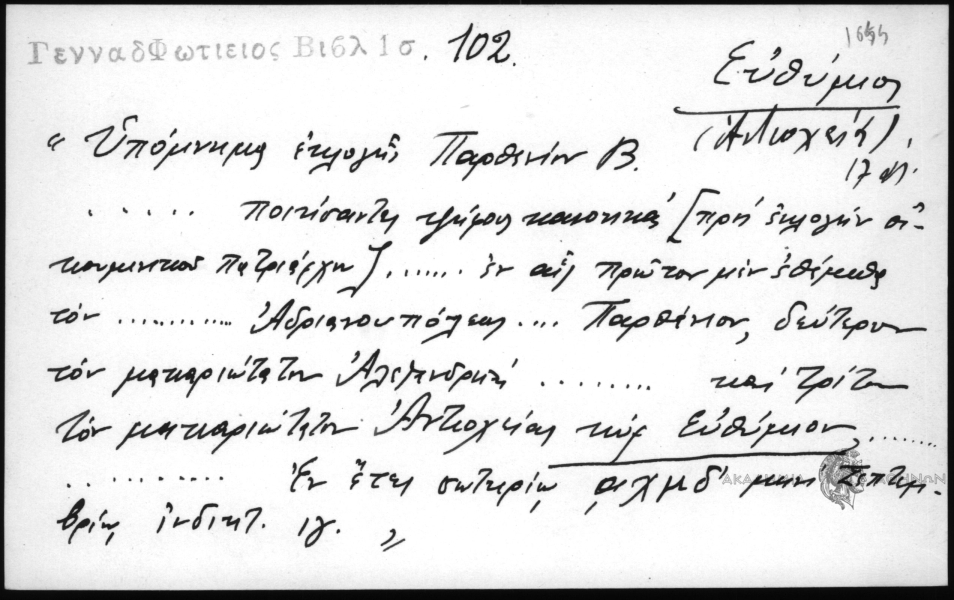 1644
ΓενναδΦωτιειος Βιβλ 1 σ. 102.
Εὐθύμιος
(Ἀντιοχείας)
17 αἰ.
" Ὑπόμνημα ἐκλογῆς Παρθενίου Β.
..... ποιήσαντες ψήφους κανονικάς [πρὸς ἐκλογὴν οἰ-
κουμενικοῦ πατριάρχου] ....... ἐν αἷς πρῶτον μὲν ἐθέμεθα
τὸν ............ Ἀδριανουπόλεως .... Παρθένιον, δεύτερον
τὸν μακαριώτατον Ἀλεξανδρείας ........ καὶ τρίτον
τὸν μακαριώτατον Ἀντιοχείας κὺρ Εὐθύμιον, .......
.......... Ἐν ἔτει σωτηρίῳ ͵αχμδʹ μηνὶ Σεπτεμ-
βρίῳ ἰνδικτ. ιγ. "
ΑΚΑΔΗΜΙΑ ΑΘΗΝΩΝ